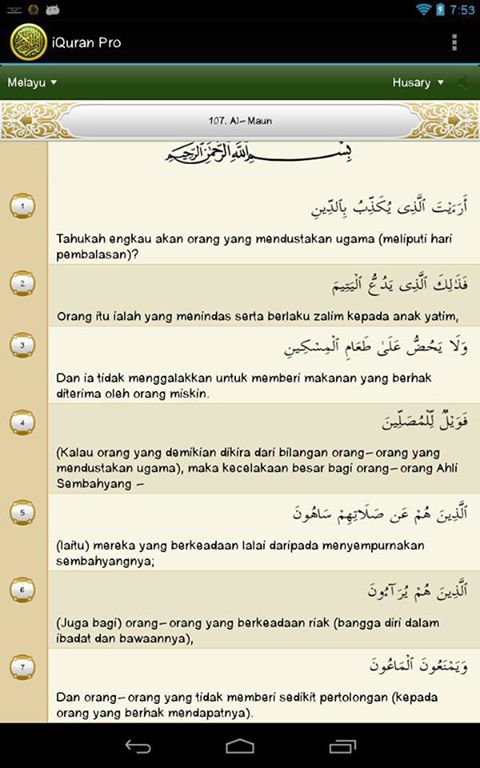 7:53
iQuran Pro
Melayu
Husary
107. Al-Maun
بِسْمِ ٱللَّهِ ٱلرَّحْمَٰنِ ٱلرَّحِيمِ
1
أَرَءَيْتَ ٱلَّذِى يُكَذِّبُ بِٱلدِّينِ
Tahukah engkau akan orang yang mendustakan ugama (meliputi hari
pembalasan)?
2
فَذَٰلِكَ ٱلَّذِى يَدُعُّ ٱلْيَتِيمَ
Orang itu ialah yang menindas serta berlaku zalim kepada anak yatim,
3
وَلَا يَحُضُّ عَلَىٰ طَعَامِ ٱلْمِسْكِينِ
Dan ia tidak menggalakkan untuk memberi makanan yang berhak
diterima oleh orang miskin.
4
فَوَيْلٌ لِّلْمُصَلِّينَ
(Kalau orang yang demikian dikira dari bilangan orang-orang yang
mendustakan ugama), maka kecelakaan besar bagi orang-orang Ahli
Sembahyang -
5
ٱلَّذِينَ هُمْ عَن صَلَاتِهِمْ سَاهُونَ
(laitu) mereka yang berkeadaan lalai daripada menyempurnakan
sembahyangnya;
6
ٱلَّذِينَ هُمْ يُرَآءُونَ
(Juga bagi) orang-orang yang berkeadaan riak (bangga diri dalam
ibadat dan bawaannya),
7
وَيَمْنَعُونَ ٱلْمَاعُونَ
Dan orang-orang yang tidak memberi sedikit pertolongan (kepada
orang yang berhak mendapatnya).